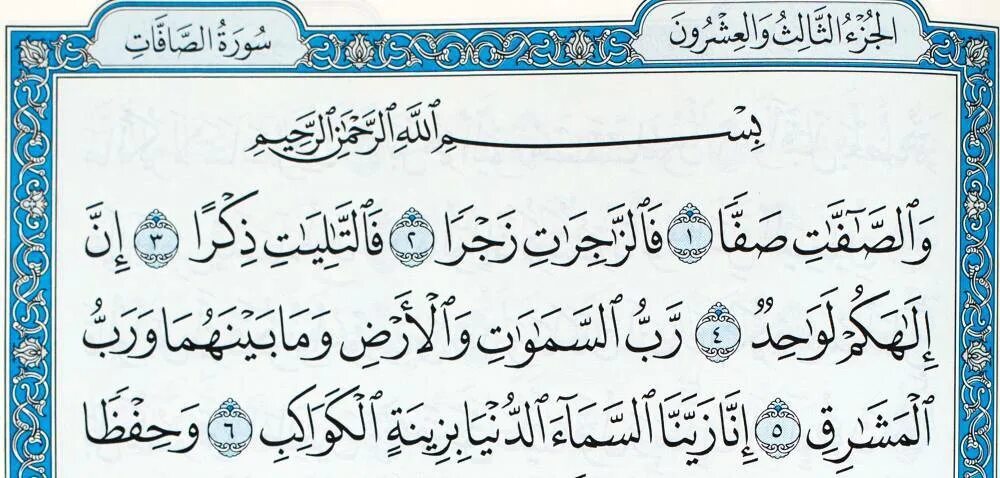 الجُزْءُ الثَّالِثُ وَالعِشْرُونَ
سُورَةُ الصَّافَّاتِ
بِسْمِ ٱللَّهِ ٱلرَّحْمَٰنِ ٱلرَّحِيمِ
وَٱلصَّٰٓفَّٰتِ صَفًّا ١ فَٱلزَّٰجِرَٰتِ زَجْرًا ٢ فَٱلتَّٰلِيَٰتِ ذِكْرًا ٣ إِنَّ
إِلَٰهَكُمْ لَوَٰحِدٌ ٤ رَّبُّ ٱلسَّمَٰوَٰتِ وَٱلْأَرْضِ وَمَا بَيْنَهُمَا وَرَبُّ
ٱلْمَشَٰرِقِ ٥ إِنَّا زَيَّنَّا ٱلسَّمَآءَ ٱلدُّنْيَا بِزِينَةٍ ٱلْكَوَاكِبِ ٦ وَحِفْظًا